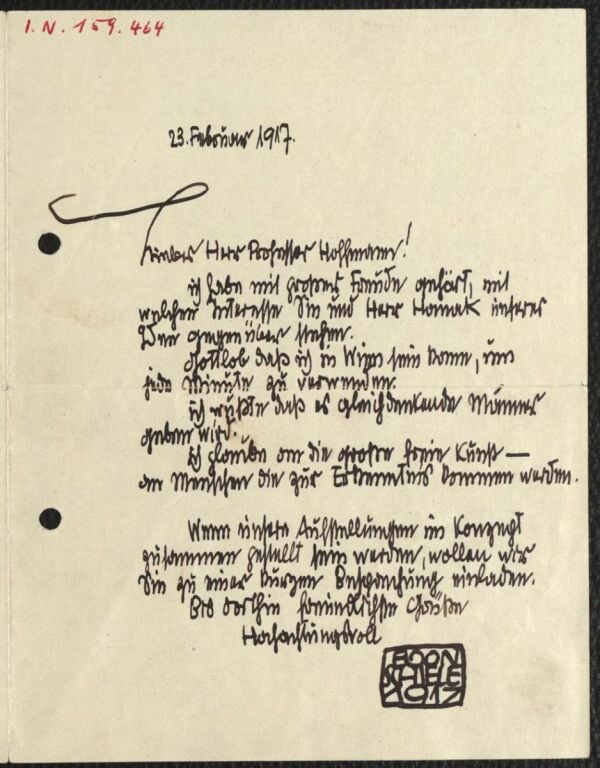 I.N. 159.464
23. Februar 1917.
Lieber Herr Professor Hoffmann!
ich habe mit grosser Freude gehört, mit
welchem Interesse Sie und Herr Hanak unserer
Idee gegenüber stehen.
Gottlob daß ich in Wien sein kann, um
jede Minute zu verwenden.
ich wußte daß es gleichdenkende Männer
geben wird.
ich glaube an die große freie Kunst —
an Menschen die zur Erkenntnis kommen werden.
Wenn unsere Aufstellungen im Konzept
zusammen gestellt sein werden, wollen wir
Sie zu einer kurzen Besprechung einladen.
Bis dorthin freundlichste Grüße
Hochachtungsvoll
EGON
SCHIELE
1917